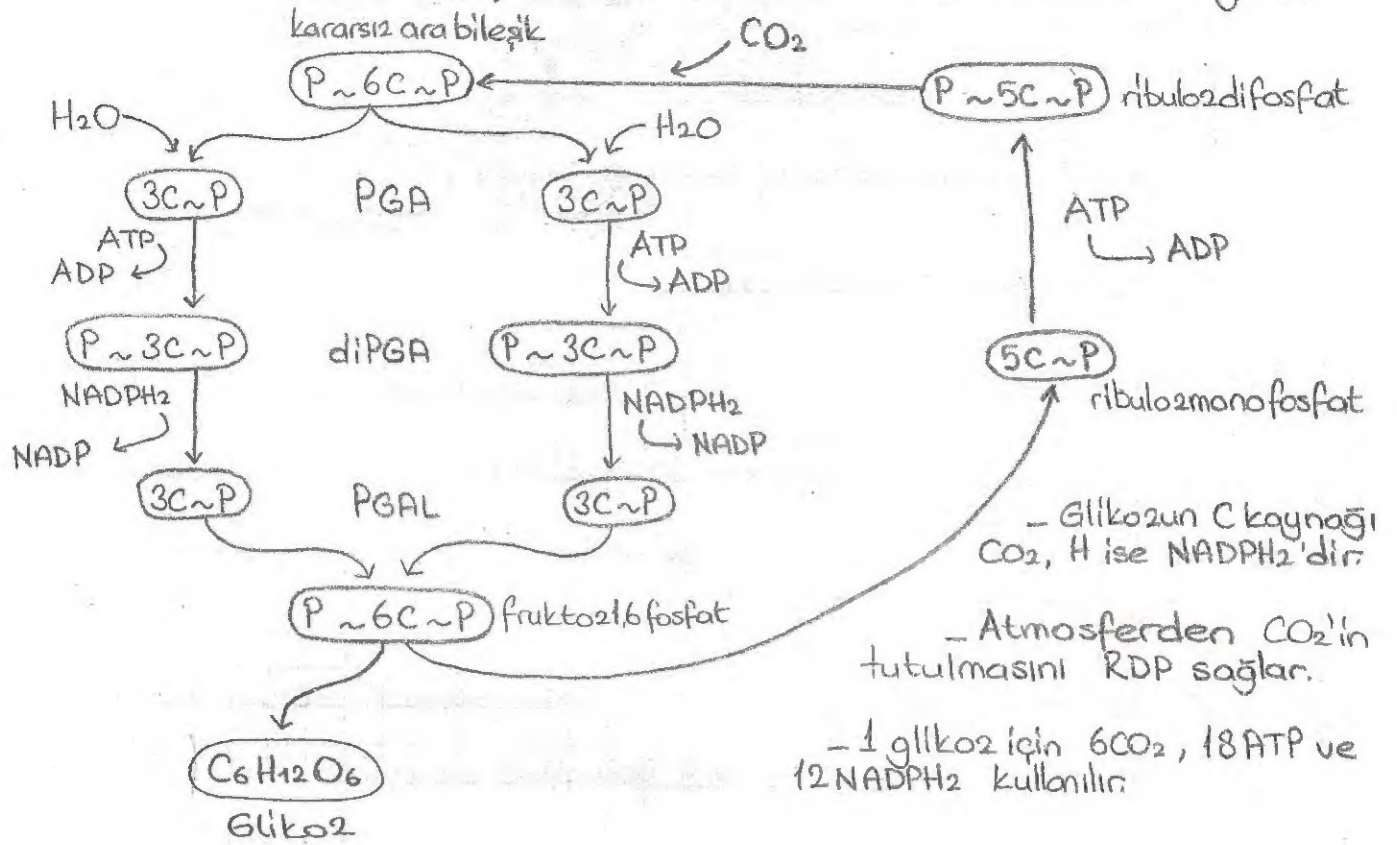 kararsız ara bileşik
CO₂
P~6C~P
P~5C~P ribulozdifosfat
H₂O
H₂O
3C~P PGA 3C~P
ATP
ADP
ATP
ADP
ATP
ADP
P~3C~P diPGA P~3C~P
5C~P
ribulozmonofosfat
NADPH₂
NADP
NADPH₂
NADP
3C~P PGAL 3C~P
P~6C~P fruktoz1,6fosfat
C₆H₁₂O₆
Glikoz
- Glikozun C kaynağı
CO₂, H ise NADPH₂'dir.
- Atmosferden CO₂'in
tutulmasını RDP sağlar.
- 1 glikoz için 6CO₂, 18ATP ve
12NADPH₂ kullanılır.